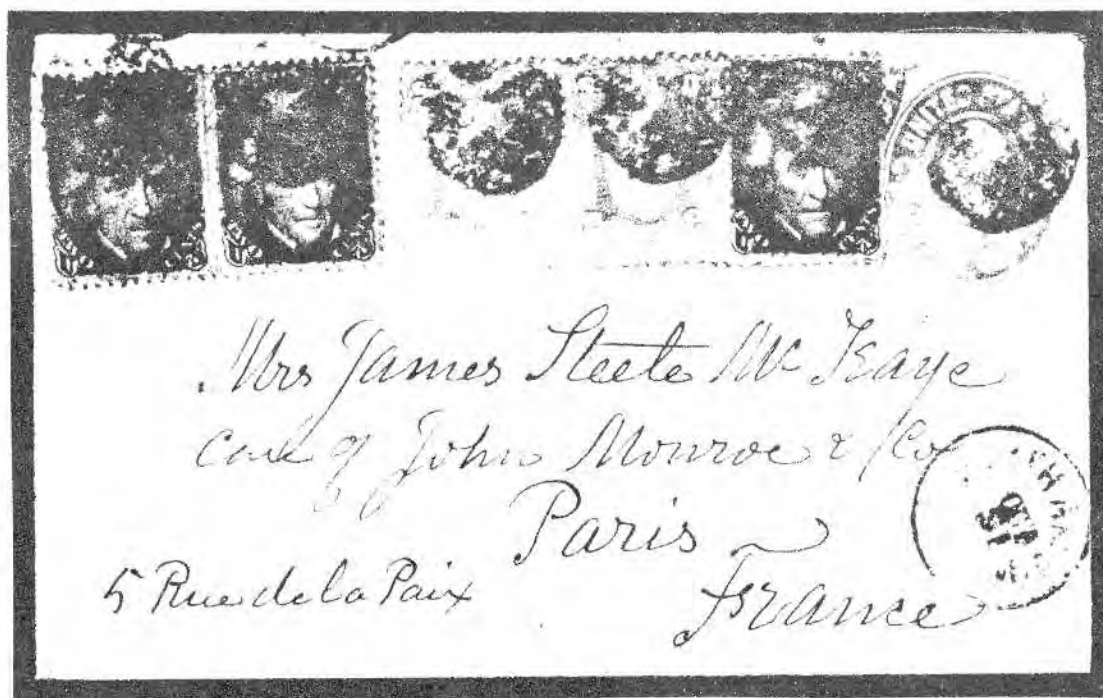 Mrs James Steele Mc Kaye
care of John Monroe & Co
Paris
France
5 Rue de la Paix